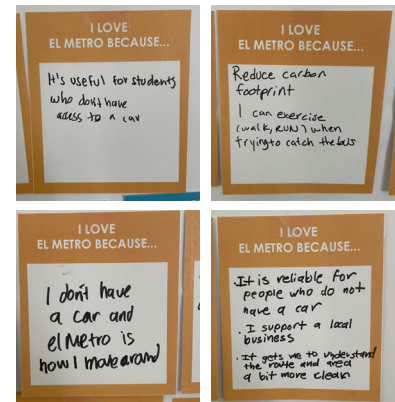 I LOVE
EL METRO BECAUSE...
It's useful for students
who don't have
access to a car
I LOVE
EL METRO BECAUSE...
Reduce carbon
footprint
I can exercise
(walk, RUN) when
trying to catch the bus
I LOVE
EL METRO BECAUSE...
I don't have
a car and
el Metro is
how I move around
I LOVE
EL METRO BECAUSE...
· It is reliable for
people who do not
have a car
· I support a local
business
· It gets me to understand
the route and area
a bit more clear